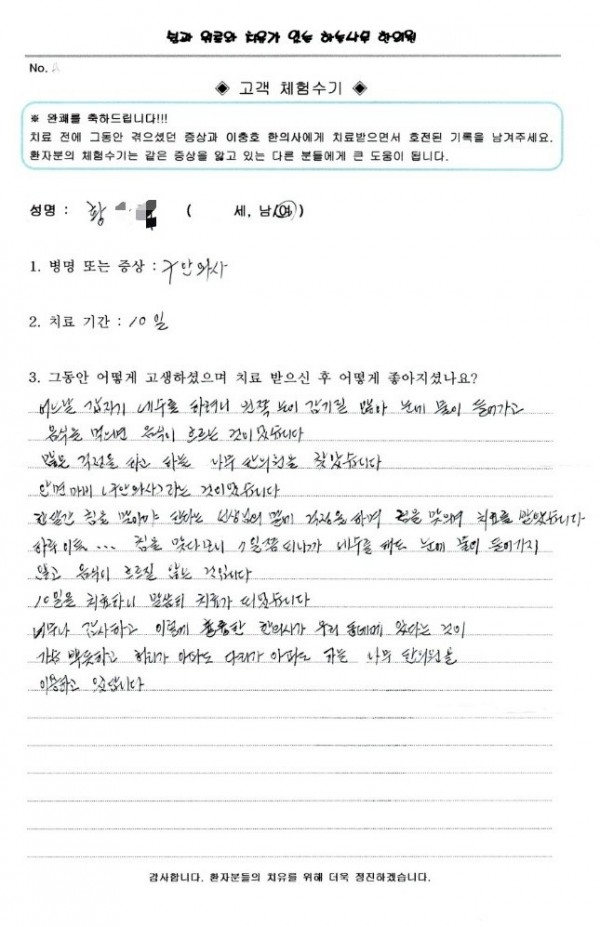 No.
◈ 고객 체험수기 ◈
※ 완쾌를 축하드립니다!!!
치료 전에 그동안 겪으셨던 증상과 이충호 한의사에게 치료받으면서 호전된 기록을 남겨주세요.
환자분의 체험수기는 같은 증상을 앓고 있는 다른 분들에게 큰 도움이 됩니다.
성명 : 황 ( 세, 남,여 )
1. 병명 또는 증상 : 구안와사
2. 치료 기간 : 10일
3. 그동안 어떻게 고생하셨으며 치료 받으신 후 어떻게 좋아지셨나요?
어느날 갑자기 세수를 하려니 왼쪽 눈이 감기질 않아 눈에 물이 들어가고
음식을 먹으면 음식이 흐르는 것이었습니다
걱정을 하고 하늘 나무 한의원을 찾았습니다
안면마비 (구안와사)라는 것이었습니다
한달간 침을 맞아야 한다는 선생님의 말에 걱정을 하며 침을 맞으며 치료를 받았습니다
하루 이틀... 침을 맞다보니 7일쯤 지나가 세수를 해도 눈에 물이 들어가지
않고 음식이 흐르질 않는 것입니다
10일을 치료하니 말끔히 치료가 되었습니다
너무나 감사하고 이렇게 훌륭한 한의사가 우리 동네에 있다는 것이
가슴 뿌듯하고 허리가 아파도 다리가 아파도 하늘 나무 한의원을
이용하고 있습니다
감사합니다. 환자분들의 치유를 위해 더욱 정진하겠습니다.